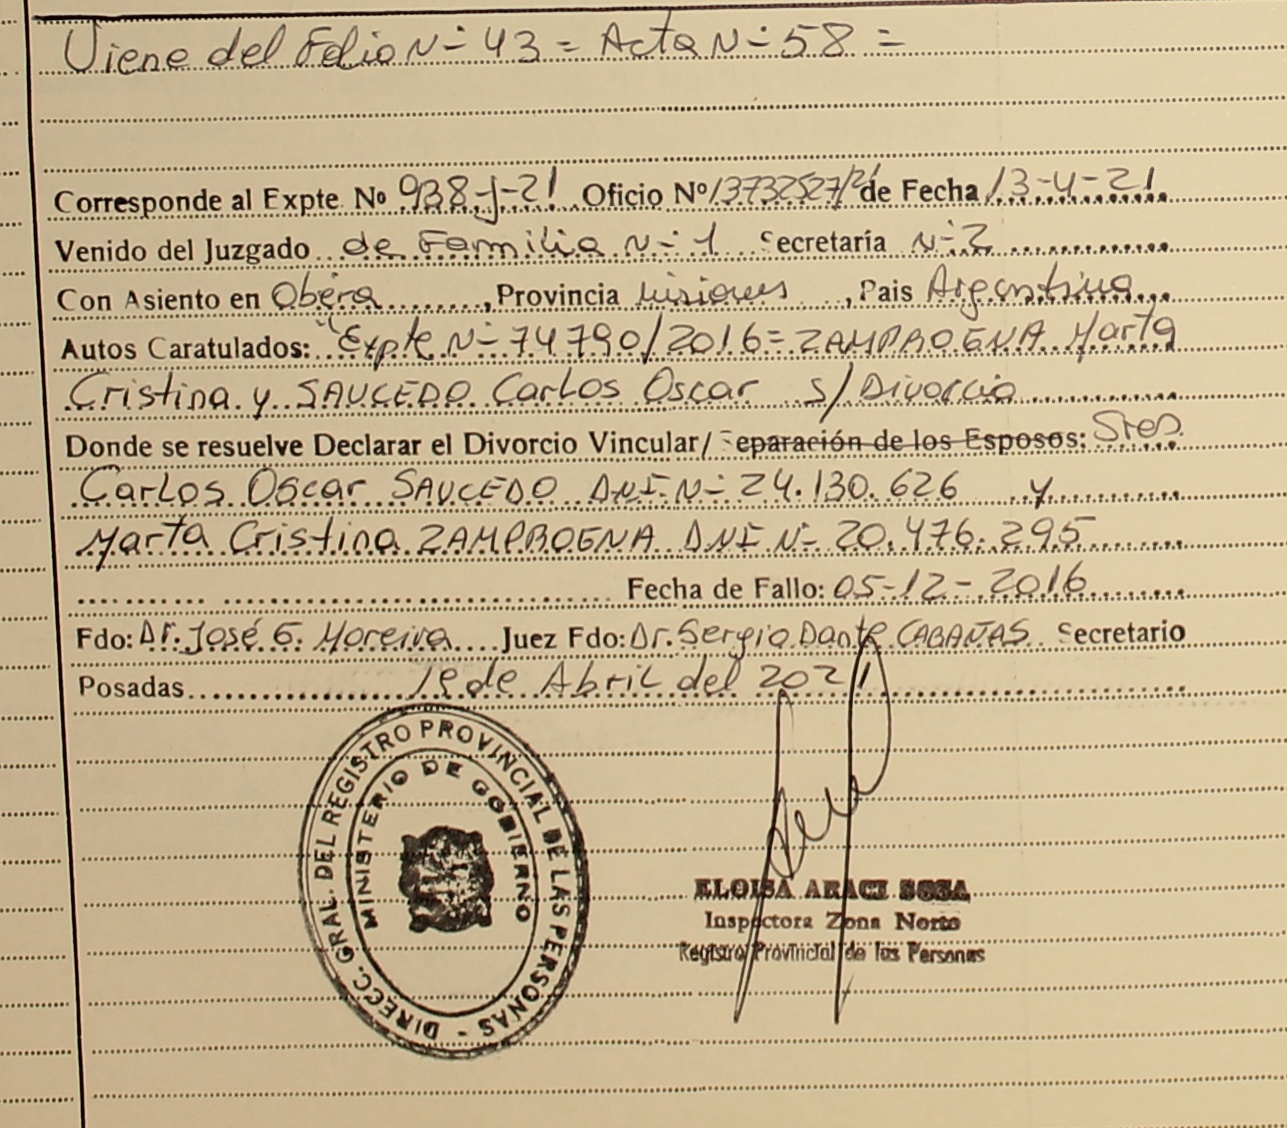 Viene del Folio N-43 = Acta N-58 =
Corresponde al Expte No 938-J-21 Oficio Nº 13732527/21 de Fecha 13-4-21.
Venido del Juzgado de Familia N-1 Secretaría N-2
Con Asiento en Oberá, Provincia Misiones, Pais Argentina
Autos Caratulados: "Expte N-74790/2016= ZAMPROGNA Marta
Cristina y SAUCEDO Carlos Oscar s/Divorcio
Donde se resuelve Declarar el Divorcio Vincular/ Separación de los Esposos: Sres.
Carlos Oscar SAUCEDO DNI N- 24.130.626 y
Marta Cristina ZAMPROGNA DNI N- 20.476.295
Fecha de Fallo: 05-12-2016
Fdo: Dr. José G. Moreira Juez Fdo: Dr. Sergio Dante CABAÑAS Secretario
Posadas de Abril del 2021
DIRECC. GRAL. DEL REGISTRO PROVINCIAL DE LAS PERSONAS -
MINISTERIO DE GOBIERNO
ELOISA ARACI SOSA
Inspectora Zona Norte
Registro Provincial de las Personas